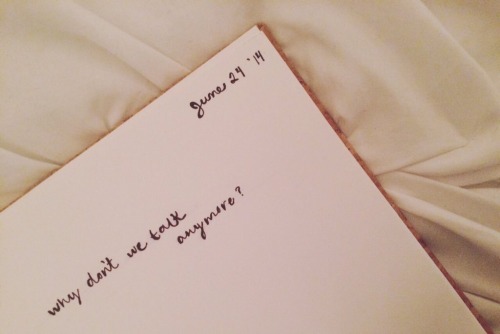 June 24 '14
why don't we talk
anymore?